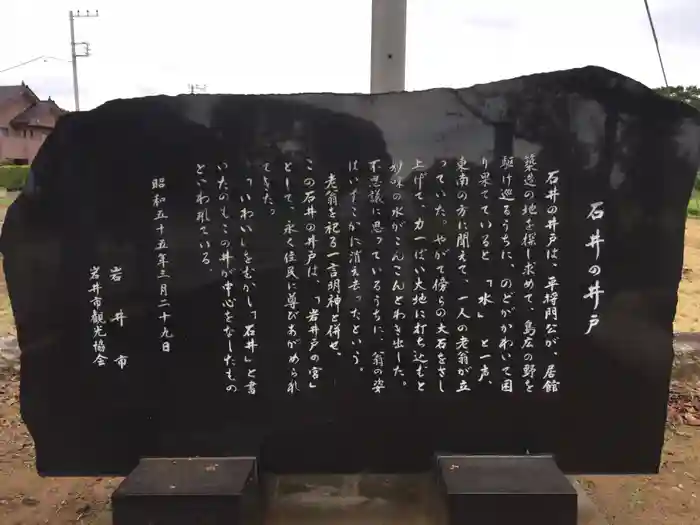 石井の井戸
石井の井戸は、平将門公が、居館
築造の地を探し求めて、島広の野を
駆け巡るうちに、のどがかわいて困
り果てていると、「水」と一声、
東南の方に聞えて、一人の老翁が立
っていた。やがて傍らの大石をさし
上げて、力一ぱい大地に打ち込むと
妙味の水がこんこんとわき出した。
不思議に思っているうちに、翁の姿
はいずこかに消え去ったという。
老翁を祀る一言明神と併せ、
この石井の井戸は、「岩井戸の宮」
として、永く住民に尊びあがめられ
てきた。
「いわい」をむかし「石井」と書
いたのもこの井が中心をなしたもの
といわれている。
昭和五十五年三月二十九日
岩井市
岩井市観光協会